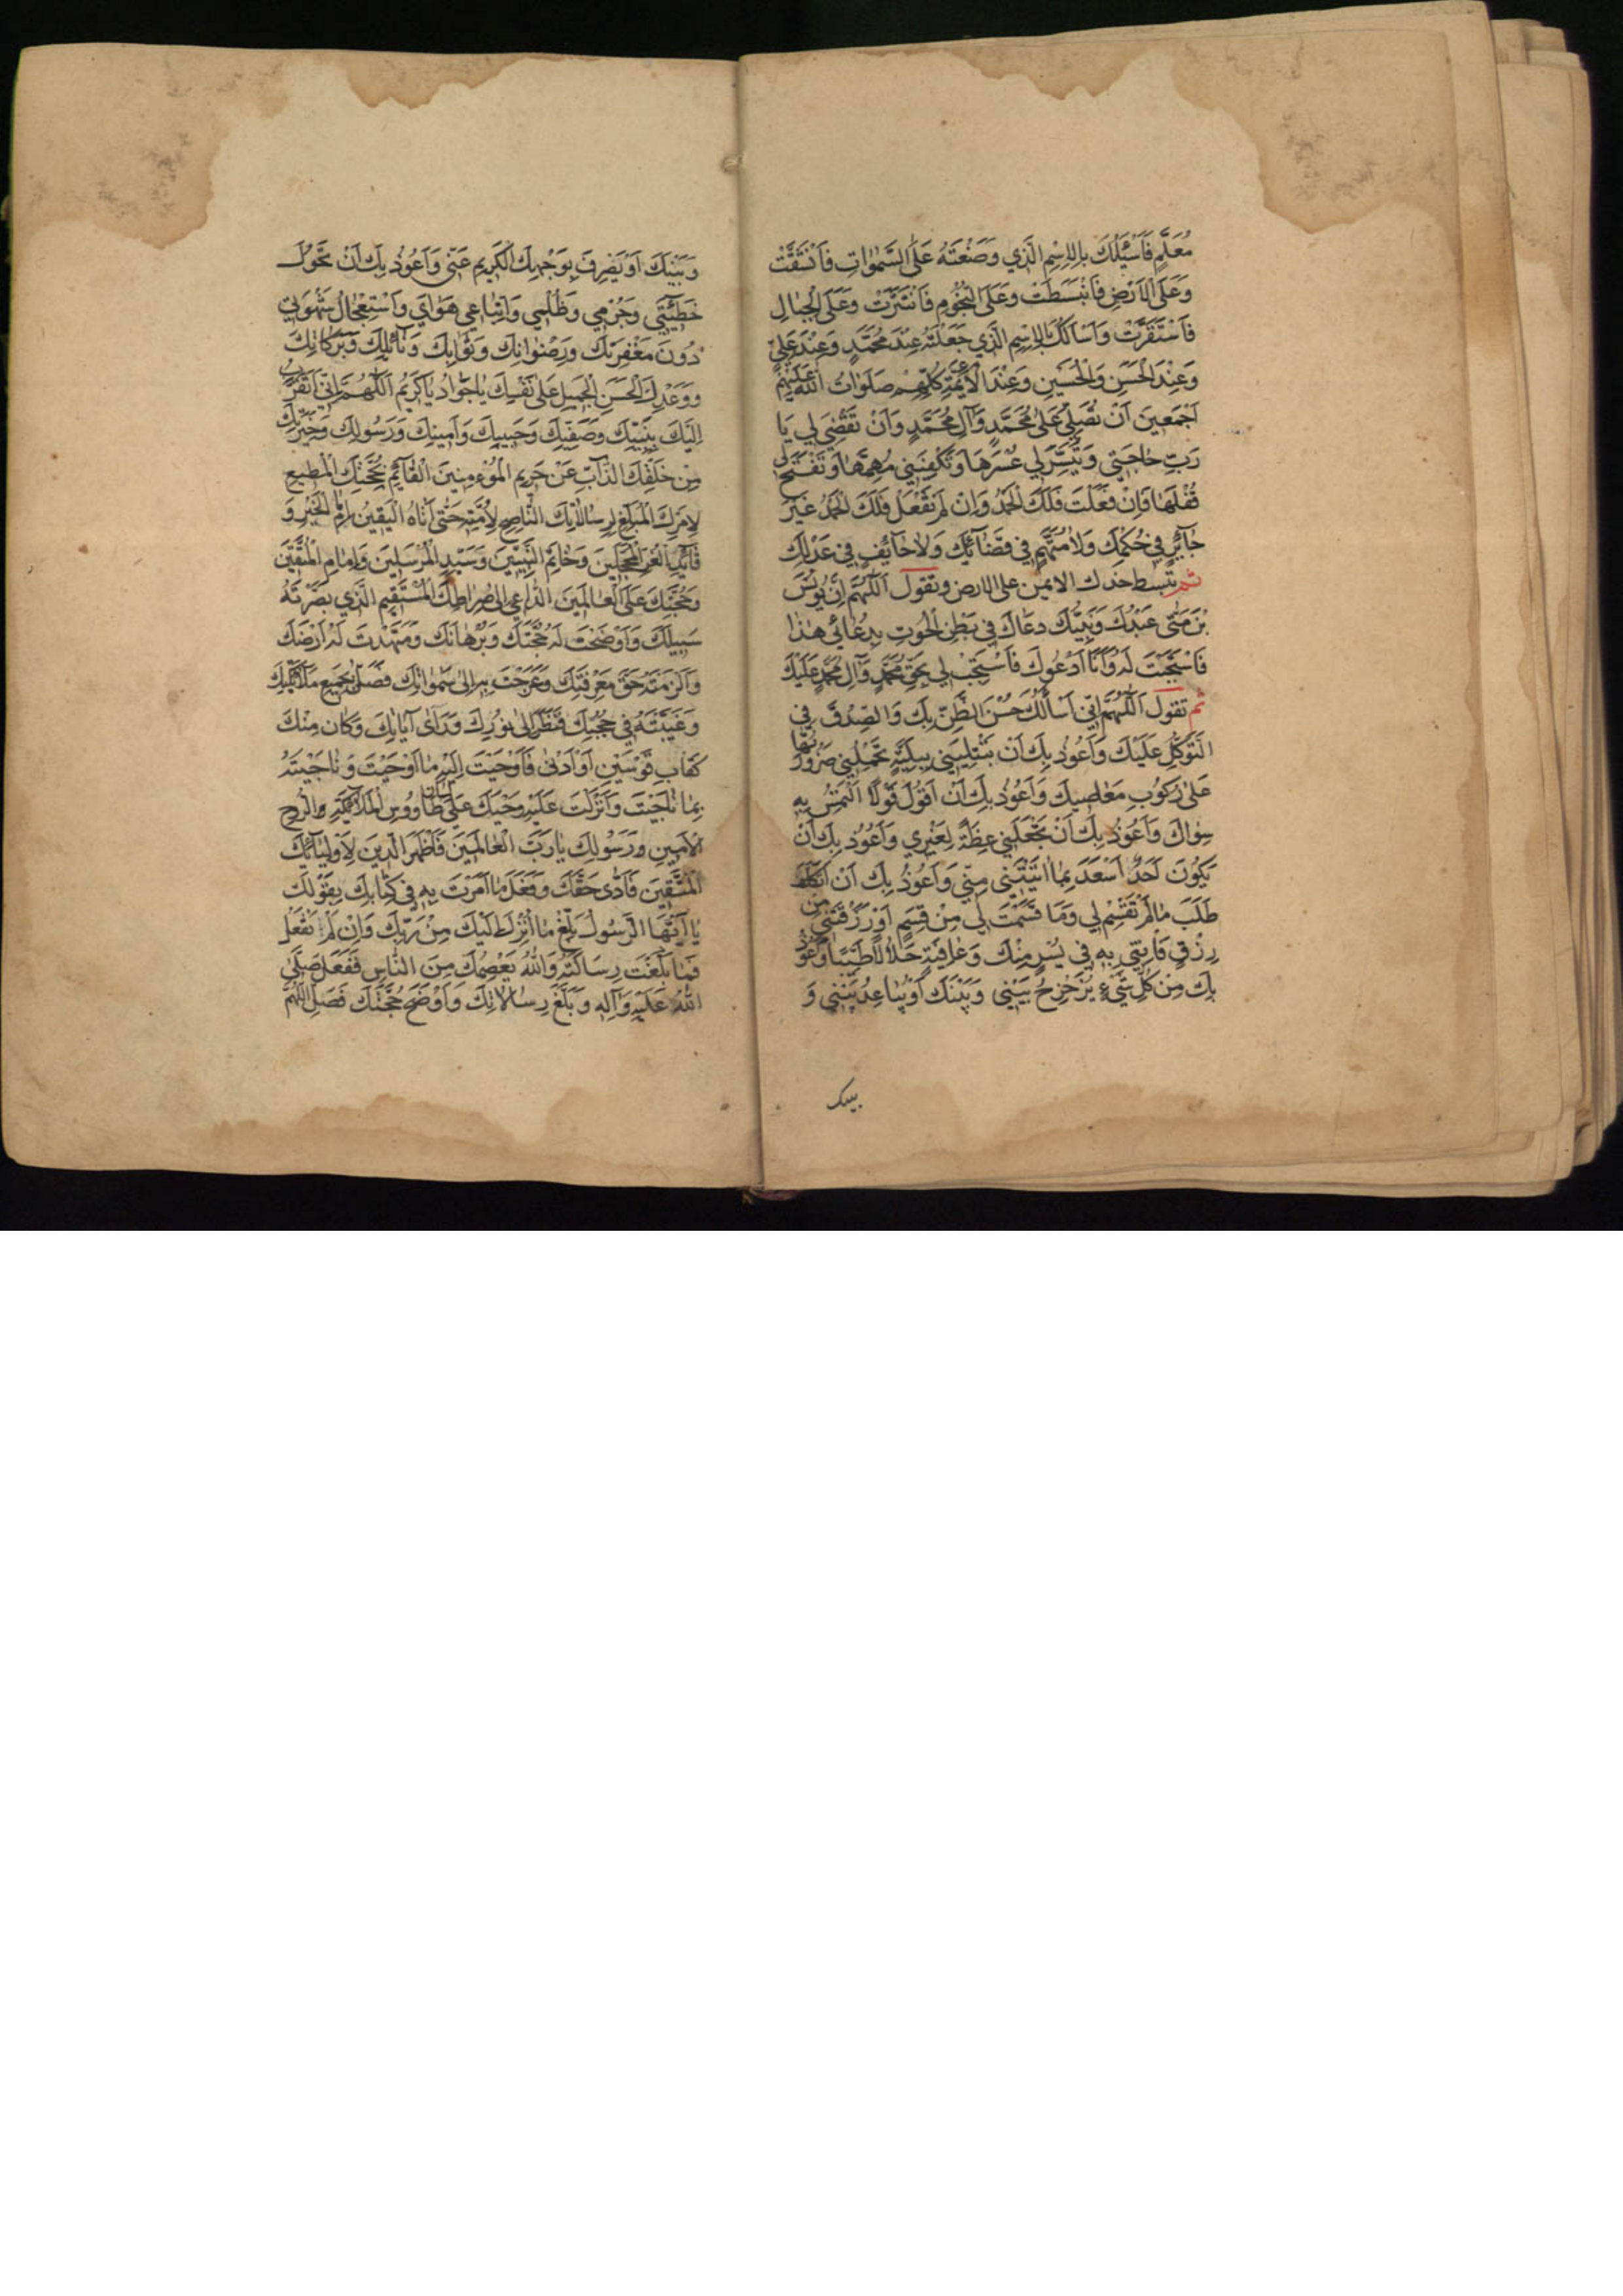 مُعَلَّمٍ فَاَسْئَلُكَ بِالْاِسْمِ الَّذي وَضَعْتَهُ عَلَى السَّمٰوَاتِ فَانْشَقَّتْ
وَعَلَى الْاَرْضِ فَانْبَسَطَتْ وَعَلَى النُّجُومِ فَانْتَثَرَتْ وَعَلَى الْجِبَالِ
فَاسْتَقَرَّتْ وَاَسْاَلُكَ بِالْاِسْمِ الَّذي جَعَلْتَهُ عِنْدَ مُحَمَّدٍ وَعِنْدَ عَلِيٍّ
وَعِنْدَ الْحَسَنِ وَالْحُسَيْنِ وَعِنْدَ الْاَئِمَّةِ كُلِّهِمْ صَلَوَاتُ اللهِ عَلَيْهِمْ
اَجْمَعينَ اَنْ تُصَلِّيَ عَلىٰ مُحَمَّدٍ وَآلِ مُحَمَّدٍ وَاَنْ تَقْضِيَ لي يَا
رَبِّ حَاجَتي وَتُيَسِّرَ لي عُسْرَهَا وَتَكْفِيَني مُهِمَّهَا وَتَفْتَحَ لي
قُفْلَهَا فَاِنْ فَعَلْتَ فَلَكَ الْحَمْدُ وَاِنْ لَمْ تَفْعَلْ فَلَكَ الْحَمْدُ غَيْرَ
جَآئِرٍ في حُكْمِكَ وَلَا مُتَّهَمٍ في قَضَآئِكَ وَلَا خَآئِفٍ في عَدْلِكَ
ثم تبسط خدك الايمن على الارض وتقول اَللّٰهُمَّ اِنَّ يُونُسَ
بْنَ مَتّٰى عَبْدُكَ وَنَبِيُّكَ دَعَاكَ في بَطْنِ الْحُوتِ بِدُعَائي هٰذَا
فَاسْتَجَبْتَ لَهُ وَاَنَا اَدْعُوكَ فَاسْتَجِبْ لي بِحَقِّ مُحَمَّدٍ وَآلِ مُحَمَّدٍ عَلَيْكَ
ثم تقول اَللّٰهُمَّ اِنّي اَسْاَلُكَ حُسْنَ الظَّنِّ بِكَ وَالصِّدْقَ في
التَّوَكُّلِ عَلَيْكَ وَاَعُوذُ بِكَ اَنْ تَبْتَلِيَني بِبَلِيَّةٍ تَحْمِلُني ضَرُورَتُهَا
عَلىٰ رُكُوبِ مَعَاصيكَ وَاَعُوذُ بِكَ اَنْ اَقُولَ قَوْلًا اَلْتَمِسُ بِهِ
سِوَاكَ وَاَعُوذُ بِكَ اَنْ تَجْعَلَني عِظَةً لِغَيْري وَاَعُوذُ بِكَ اَنْ
يَكُونَ اَحَدٌ اَسْعَدَ بِمَا اٰتَيْتَني مِنّي وَاَعُوذُ بِكَ اَنْ اَتَكَلَّفَ
طَلَبَ مَا لَمْ تَقْسِمْ لي وَمَا قَسَمْتَ لي مِنْ قِسَمٍ اَوْ رَزَقْتَني مِنْ
رِزْقٍ فَاٰتِني بِهِ في يُسْرٍ مِنْكَ وَعَافِيَةٍ حَلَالًا طَيِّبًا وَاَعُوذُ
بِكَ مِنْ كُلِّ شَيْءٍ يُزَحْزِحُ بَيْني وَبَيْنَكَ اَوْ يُبَاعِدُ بَيْني وَ
بينك
وَبَيْنَكَ اَوْ يَصْرِفَ بِوَجْهِكَ الْكَريمِ عَنّي وَاَعُوذُ بِكَ اَنْ تَحُولَ
خَطيئَتي وَجُرْمي وَظُلْمي وَاتِّبَاعي هَوَايَ وَاسْتِعْجَالُ شَهْوَتي
دُونَ مَغْفِرَتِكَ وَرِضْوَانِكَ وَثَوَابِكَ وَنَآئِلِكَ وَبَرَكَاتِكَ
وَوَعْدِكَ الْحَسَنِ الْجَميلِ عَلىٰ نَفْسِكَ يَا جَوَادُ يَا كَريمُ اَللّٰهُمَّ اِنّي اَتَقَرَّبُ
اِلَيْكَ بِنَبِيِّكَ وَصَفِيِّكَ وَحَبيبِكَ وَاَمينِكَ وَرَسُولِكَ وَخِيَرَتِكَ
مِنْ خَلْقِكَ الذَّآبِّ عَنْ حَريمِ الْمُؤْمِنينَ الْقَآئِمِ بِحُجَّتِكَ الْمُطيعِ
لِاَمْرِكَ الْمُبَلِّغِ لِرِسَالَاتِكَ النَّاصِحِ لِاُمَّتِهِ حَتّٰى اَتَاهُ الْيَقينُ اِمَامِ الْخَيْرِ وَ
قَآئِدِ الْغُرِّ الْمُحَجَّلينَ وَخَاتَمِ النَّبِيّينَ وَسَيِّدِ الْمُرْسَلينَ وَاِمَامِ الْمُتَّقينَ
وَحُجَّتِكَ عَلَى الْعَالَمينَ الدَّاعي اِلىٰ صِرَاطِكَ الْمُسْتَقيمِ الَّذي بَصَّرْتَهُ
سَبيلَكَ وَاَوْضَحْتَ لَهُ حُجَّتَكَ وَبُرْهَانَكَ وَمَهَّدْتَ لَهُ اَرْضَكَ
وَاَلْزَمْتَهُ حَقَّ مَعْرِفَتِكَ وَعَرَجْتَ بِهِ اِلىٰ سَمٰوَاتِكَ فَصَلّٰى بِجَميعِ مَلَآئِكَتِكَ
وَغَيَّبْتَهُ في حُجُبِكَ فَنَظَرَ اِلىٰ نُورِكَ وَرَاٰى آيَاتِكَ وَكَانَ مِنْكَ
كَقَابِ قَوْسَيْنِ اَوْ اَدْنىٰ فَاَوْحَيْتَ اِلَيْهِ مَا اَوْحَيْتَ وَنَاجَيْتَهُ
بِمَا نَاجَيْتَ وَاَنْزَلْتَ عَلَيْهِ وَحْيَكَ عَلىٰ لسان طَاوُوسِ الْمَلَآئِكَةِ وَالرُّوحِ
الْاَمينِ وَرَسُولِكَ يَا رَبَّ الْعَالَمينَ فَاَظْهَرَ الدّينَ لِاَوْلِيَآئِكَ
الْمُتَّقينَ فَاَدّٰى حَقَّكَ وَفَعَلَ مَا اَمَرْتَ بِهِ في كِتَابِكَ بِقَوْلِكَ
يَا اَيُّهَا الرَّسُولُ بَلِّغْ مَا اُنْزِلَ اِلَيْكَ مِنْ رَبِّكَ وَاِنْ لَمْ تَفْعَلْ
فَمَا بَلَّغْتَ رِسَالَتَهُ وَاللهُ يَعْصِمُكَ مِنَ النَّاسِ فَفَعَلَ صَلَّى
اللهُ عَلَيْهِ وَآلِهِ وَبَلَّغَ رِسَالَاتِكَ وَاَوْضَحَ حُجَّتَكَ فَصَلِّ اللّٰهُمَّ